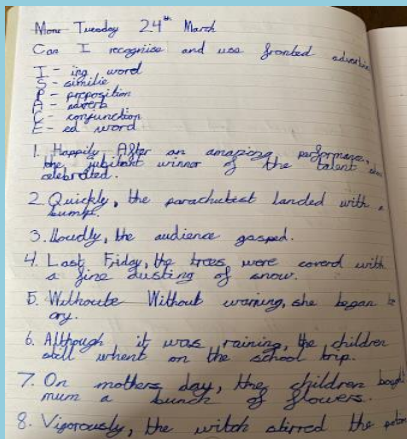 Mone Tuesday 24th March
Can I recognise and use fronted
I - ing word
S - similie
P - preposition
A - adverb
C - conjunction
E - ed word
1. Happily After an amazing performance,
the jubilant winner of the talent
celebrated.
2. Quickly, the parachutest landed with a
bump.
3. Loudly, the audience gasped.
4. Last Friday, the trees were coverd with
a fine dusting of snow.
5. Withoute Without warning, she began to
cry.
6. Although it was raining, the children
still whent on the school trip.
7. On mothers day, the children bought
mum a bunch of flowers.
8. Vigorously, the witch stirred the